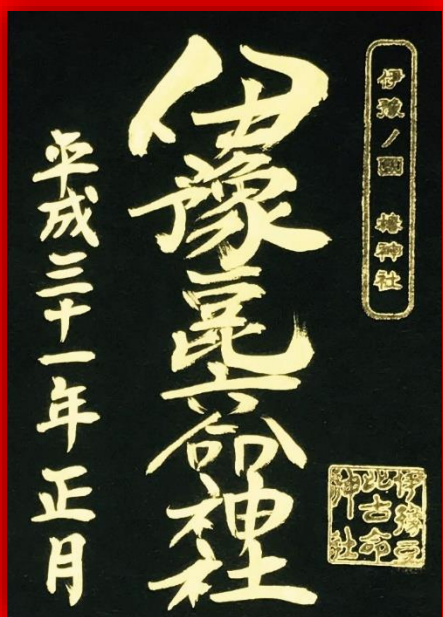 伊豫ノ國 椿神社
伊豫豆比古命神社
平成三十一年正月
伊豫豆
比古命
神社